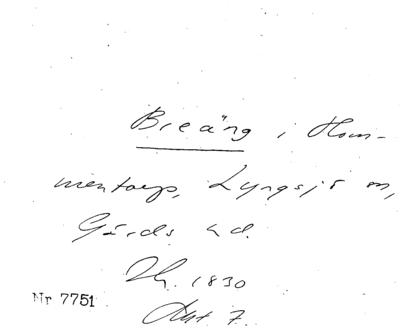 Breäng i Hom-
mentorp, Lyngsjö sn,
Gärds hd.
1830
Nr 7751
Akt 7.